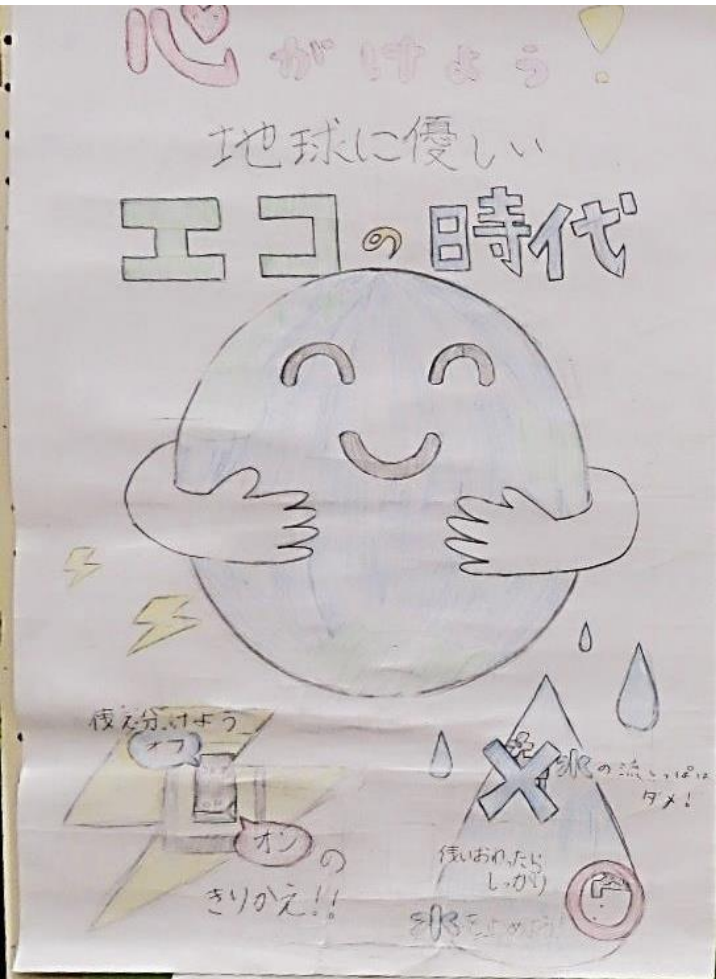 心がけよう!
地球に優しい
エコの時代
使え分けよう
オフ
オン
の
きりかえ!!
水の流しっぱは
ダメ!
使いおわったら
しっかり
水をとめよう!